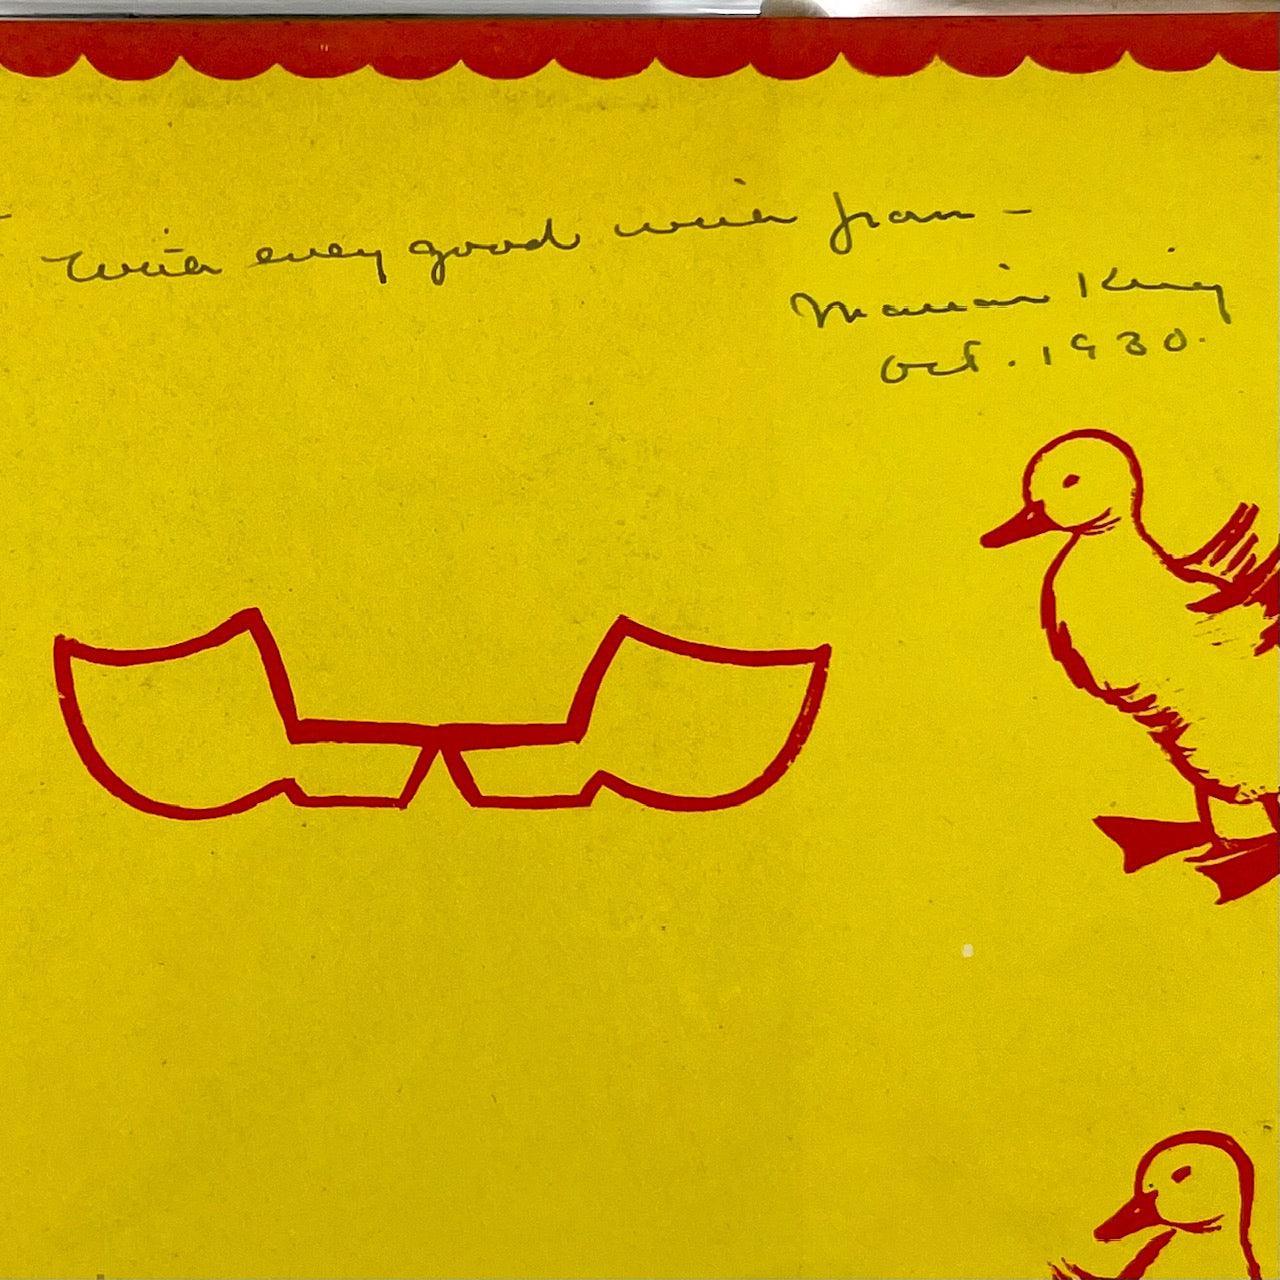 With every good wish from -
Marian King
Oct. 1930.